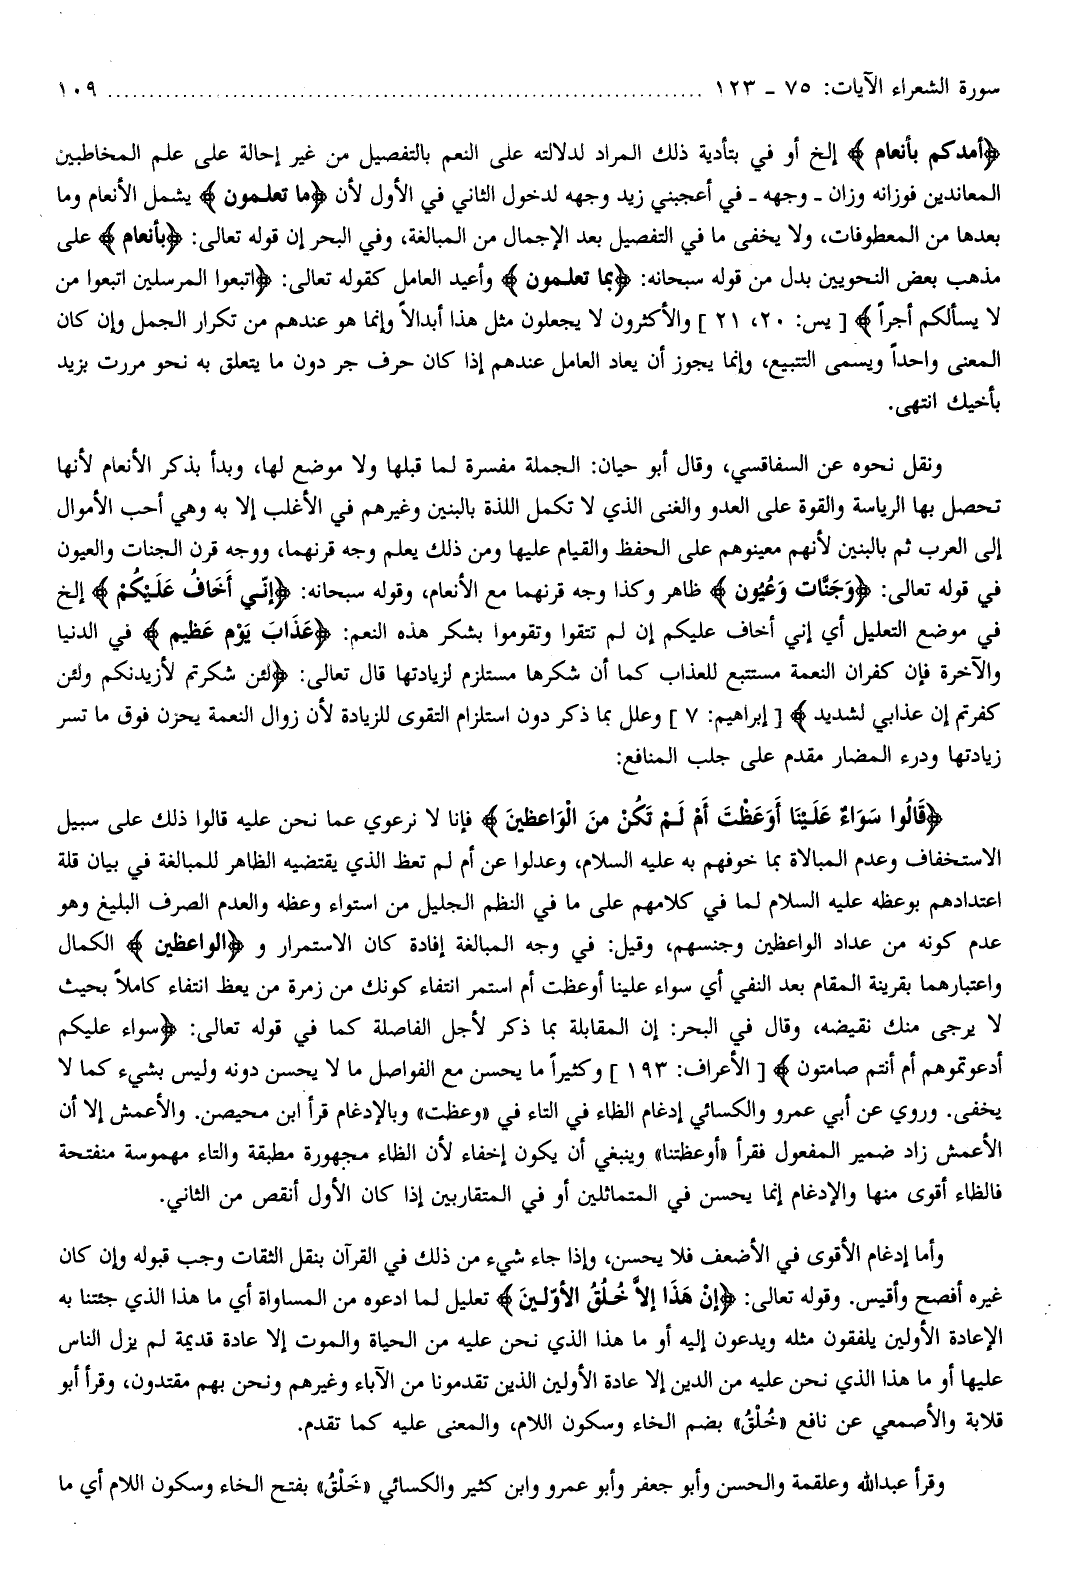 سورة الشعراء الآيات: ٧٥ ـ ١٢٣ ........................................................................ ١٠٩
﴿أمدكم بأنعام﴾ إلخ أو في بتأدية ذلك المراد لدلالته على النعم بالتفصيل من غير إحالة على علم المخاطبين
المعاندين فوزانه وزان ـ وجهه ـ في أعجبني زيد وجهه لدخول الثاني في الأول لأن ﴿ما تعلمون﴾ يشمل الأنعام وما
بعدها من المعطوفات، ولا يخفى ما في التفصيل بعد الإجمال من المبالغة، وفي البحر إن قوله تعالى: ﴿بأنعام﴾ على
مذهب بعض النحويين بدل من قوله سبحانه: ﴿بما تعلمون﴾ وأعيد العامل كقوله تعالى: ﴿اتبعوا المرسلين اتبعوا من
لا يسألكم أجراً﴾ [يس: ٢٠، ٢١] والأكثرون لا يجعلون مثل هذا أبدالاً وإنما هو عندهم من تكرار الجمل وإن كان
المعنى واحداً ويسمى التتبيع، وإنما يجوز أن يعاد العامل عندهم إذا كان حرف جر دون ما يتعلق به نحو مررت بزيد
بأخيك انتهى.
ونقل نحوه عن السفاقسي، وقال أبو حيان: الجملة مفسرة لما قبلها ولا موضع لها، وبدأ بذكر الأنعام لأنها
تحصل بها الرياسة والقوة على العدو والغنى الذي لا تكمل اللذة بالبنين وغيرهم في الأغلب إلا به وهي أحب الأموال
إلى العرب ثم بالبنين لأنهم معينوهم على الحفظ والقيام عليها ومن ذلك يعلم وجه قرنهما، ووجه قرن الجنات والعيون
في قوله تعالى: ﴿وَجَنَّات وَعُيُون﴾ ظاهر وكذا وجه قرنهما مع الأنعام، وقوله سبحانه: ﴿إنّي أَخَافُ عَلَيْكُمْ﴾ إلخ
في موضع التعليل أي إني أخاف عليكم إن لم تتقوا وتقوموا بشكر هذه النعم: ﴿عَذَابَ يَوْم عَظيم﴾ في الدنيا
والآخرة فإن كفران النعمة مستتبع للعذاب كما أن شكرها مستلزم لزيادتها قال تعالى: ﴿لئن شكرتم لأزيدنكم ولئن
كفرتم إن عذابي لشديد﴾ [إبراهيم: ٧] وعلل بما ذكر دون استلزام التقوى للزيادة لأن زوال النعمة يحزن فوق ما تسر
زيادتها ودرء المضار مقدم على جلب المنافع:
﴿قَالُوا سَوَاءٌ عَلَيْنَا أَوَعَظْتَ أَمْ لَمْ تَكُنْ منَ الْوَاعظينَ﴾ فإنا لا نرعوي عما نحن عليه قالوا ذلك على سبيل
الاستخفاف وعدم المبالاة بما خوفهم به عليه السلام، وعدلوا عن أم لم تعظ الذي يقتضيه الظاهر للمبالغة في بيان قلة
اعتدادهم بوعظه عليه السلام لما في كلامهم على ما في النظم الجليل من استواء وعظه والعدم الصرف البليغ وهو
عدم كونه من عداد الواعظين وجنسهم، وقيل: في وجه المبالغة إفادة كان الاستمرار و ﴿الواعظين﴾ الكمال
واعتبارهما بقرينة المقام بعد النفي أي سواء علينا أوعظت أم استمر انتفاء كونك من زمرة من يعظ انتفاء كاملاً بحيث
لا يرجى منك نقيضه، وقال في البحر: إن المقابلة بما ذكر لأجل الفاصلة كما في قوله تعالى: ﴿سواء عليكم
أدعوتموهم أم أنتم صامتون﴾ [الأعراف: ١٩٣] وكثيراً ما يحسن مع الفواصل ما لا يحسن دونه وليس بشيء كما لا
يخفى. وروي عن أبي عمرو والكسائي إدغام الظاء في التاء في «وعظت» وبالإدغام قرأ ابن محيصن. والأعمش إلا أن
الأعمش زاد ضمير المفعول فقرأ «أوعظتنا» وينبغي أن يكون إخفاء لأن الظاء مجهورة مطبقة والتاء مهموسة منفتحة
فالظاء أقوى منها والإدغام إنما يحسن في المتماثلين أو في المتقاربين إذا كان الأول أنقص من الثاني.
وأما إدغام الأقوى في الأضعف فلا يحسن، وإذا جاء شيء من ذلك في القرآن بنقل الثقات وجب قبوله وإن كان
غيره أفصح وأقيس. وقوله تعالى: ﴿إنْ هَذَا إلاَّ خُلُقُ الأوّلينَ﴾ تعليل لما ادعوه من المساواة أي ما هذا الذي جئتنا به
الإعادة الأولين يلفقون مثله ويدعون إليه أو ما هذا الذي نحن عليه من الحياة والموت إلا عادة قديمة لم يزل الناس
عليها أو ما هذا الذي نحن عليه من الدين إلا عادة الأولين الذين تقدمونا من الآباء وغيرهم ونحن بهم مقتدون، وقرأ أبو
قلابة والأصمعي عن نافع «خُلْقُ» بضم الخاء وسكون اللام، والمعنى عليه كما تقدم.
وقرأ عبدالله وعلقمة والحسن وأبو جعفر وأبو عمرو وابن كثير والكسائي «خَلْقُ» بفتح الخاء وسكون اللام أي ما